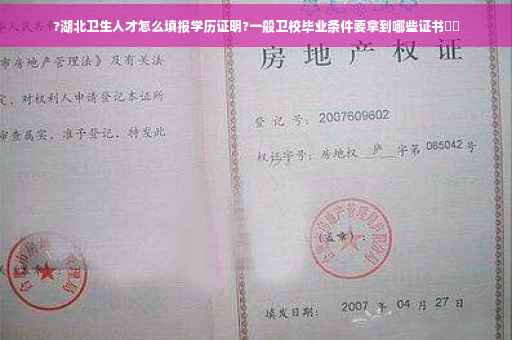 ?湖北卫生人才怎么填报学历证明?一般卫校毕业条件要拿到哪些证书□□
市房地产管理法》及有关法
定，对权利人申请登记本证所
审查属实，准予登记，特发此
房地产权证
登记号：2007609602
权证字号：房地权 庐 字第 085042 号
(盖章)：
填发日期： 2007 年 04 月 27 日